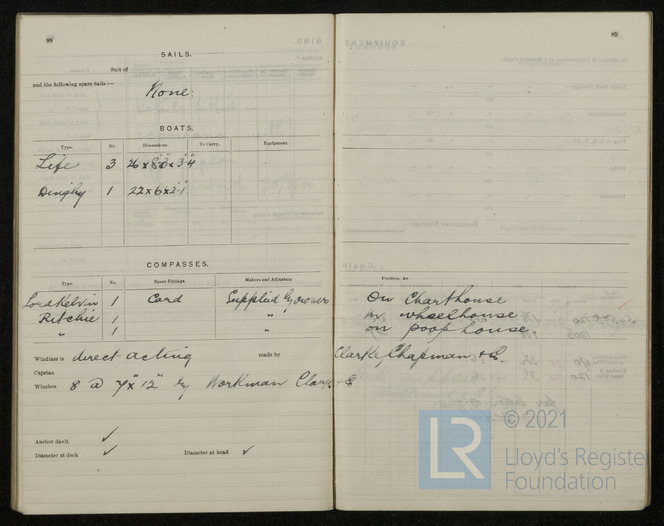 88
SAILS.
Suit of
and the following spare Sails:—
None.
BOATS.
Type. No. Dimensions. To Carry. Equipment
Life 3 26 x 8.3 x 3.4
Dinghy 1 22 x 6 x 2.1
COMPASSES.
Type. No. Spare Fittings. Makers and Adjusters.
Lord Kelvin 1 Card Supplied by owners
Ritchie 1 "
" 1
Windlass is direct acting made by
Capstan
Winches 8 @ 7" x 12" by Workman Clark & Co
Anchor davit ✓
Diameter at deck ✓ Diameter at head ✓
89
Position, &c.
On Charthouse
in wheelhouse
on poop house.
Clarke, Chapman & Co.
© 2021
LR
Lloyd's Register
Foundation